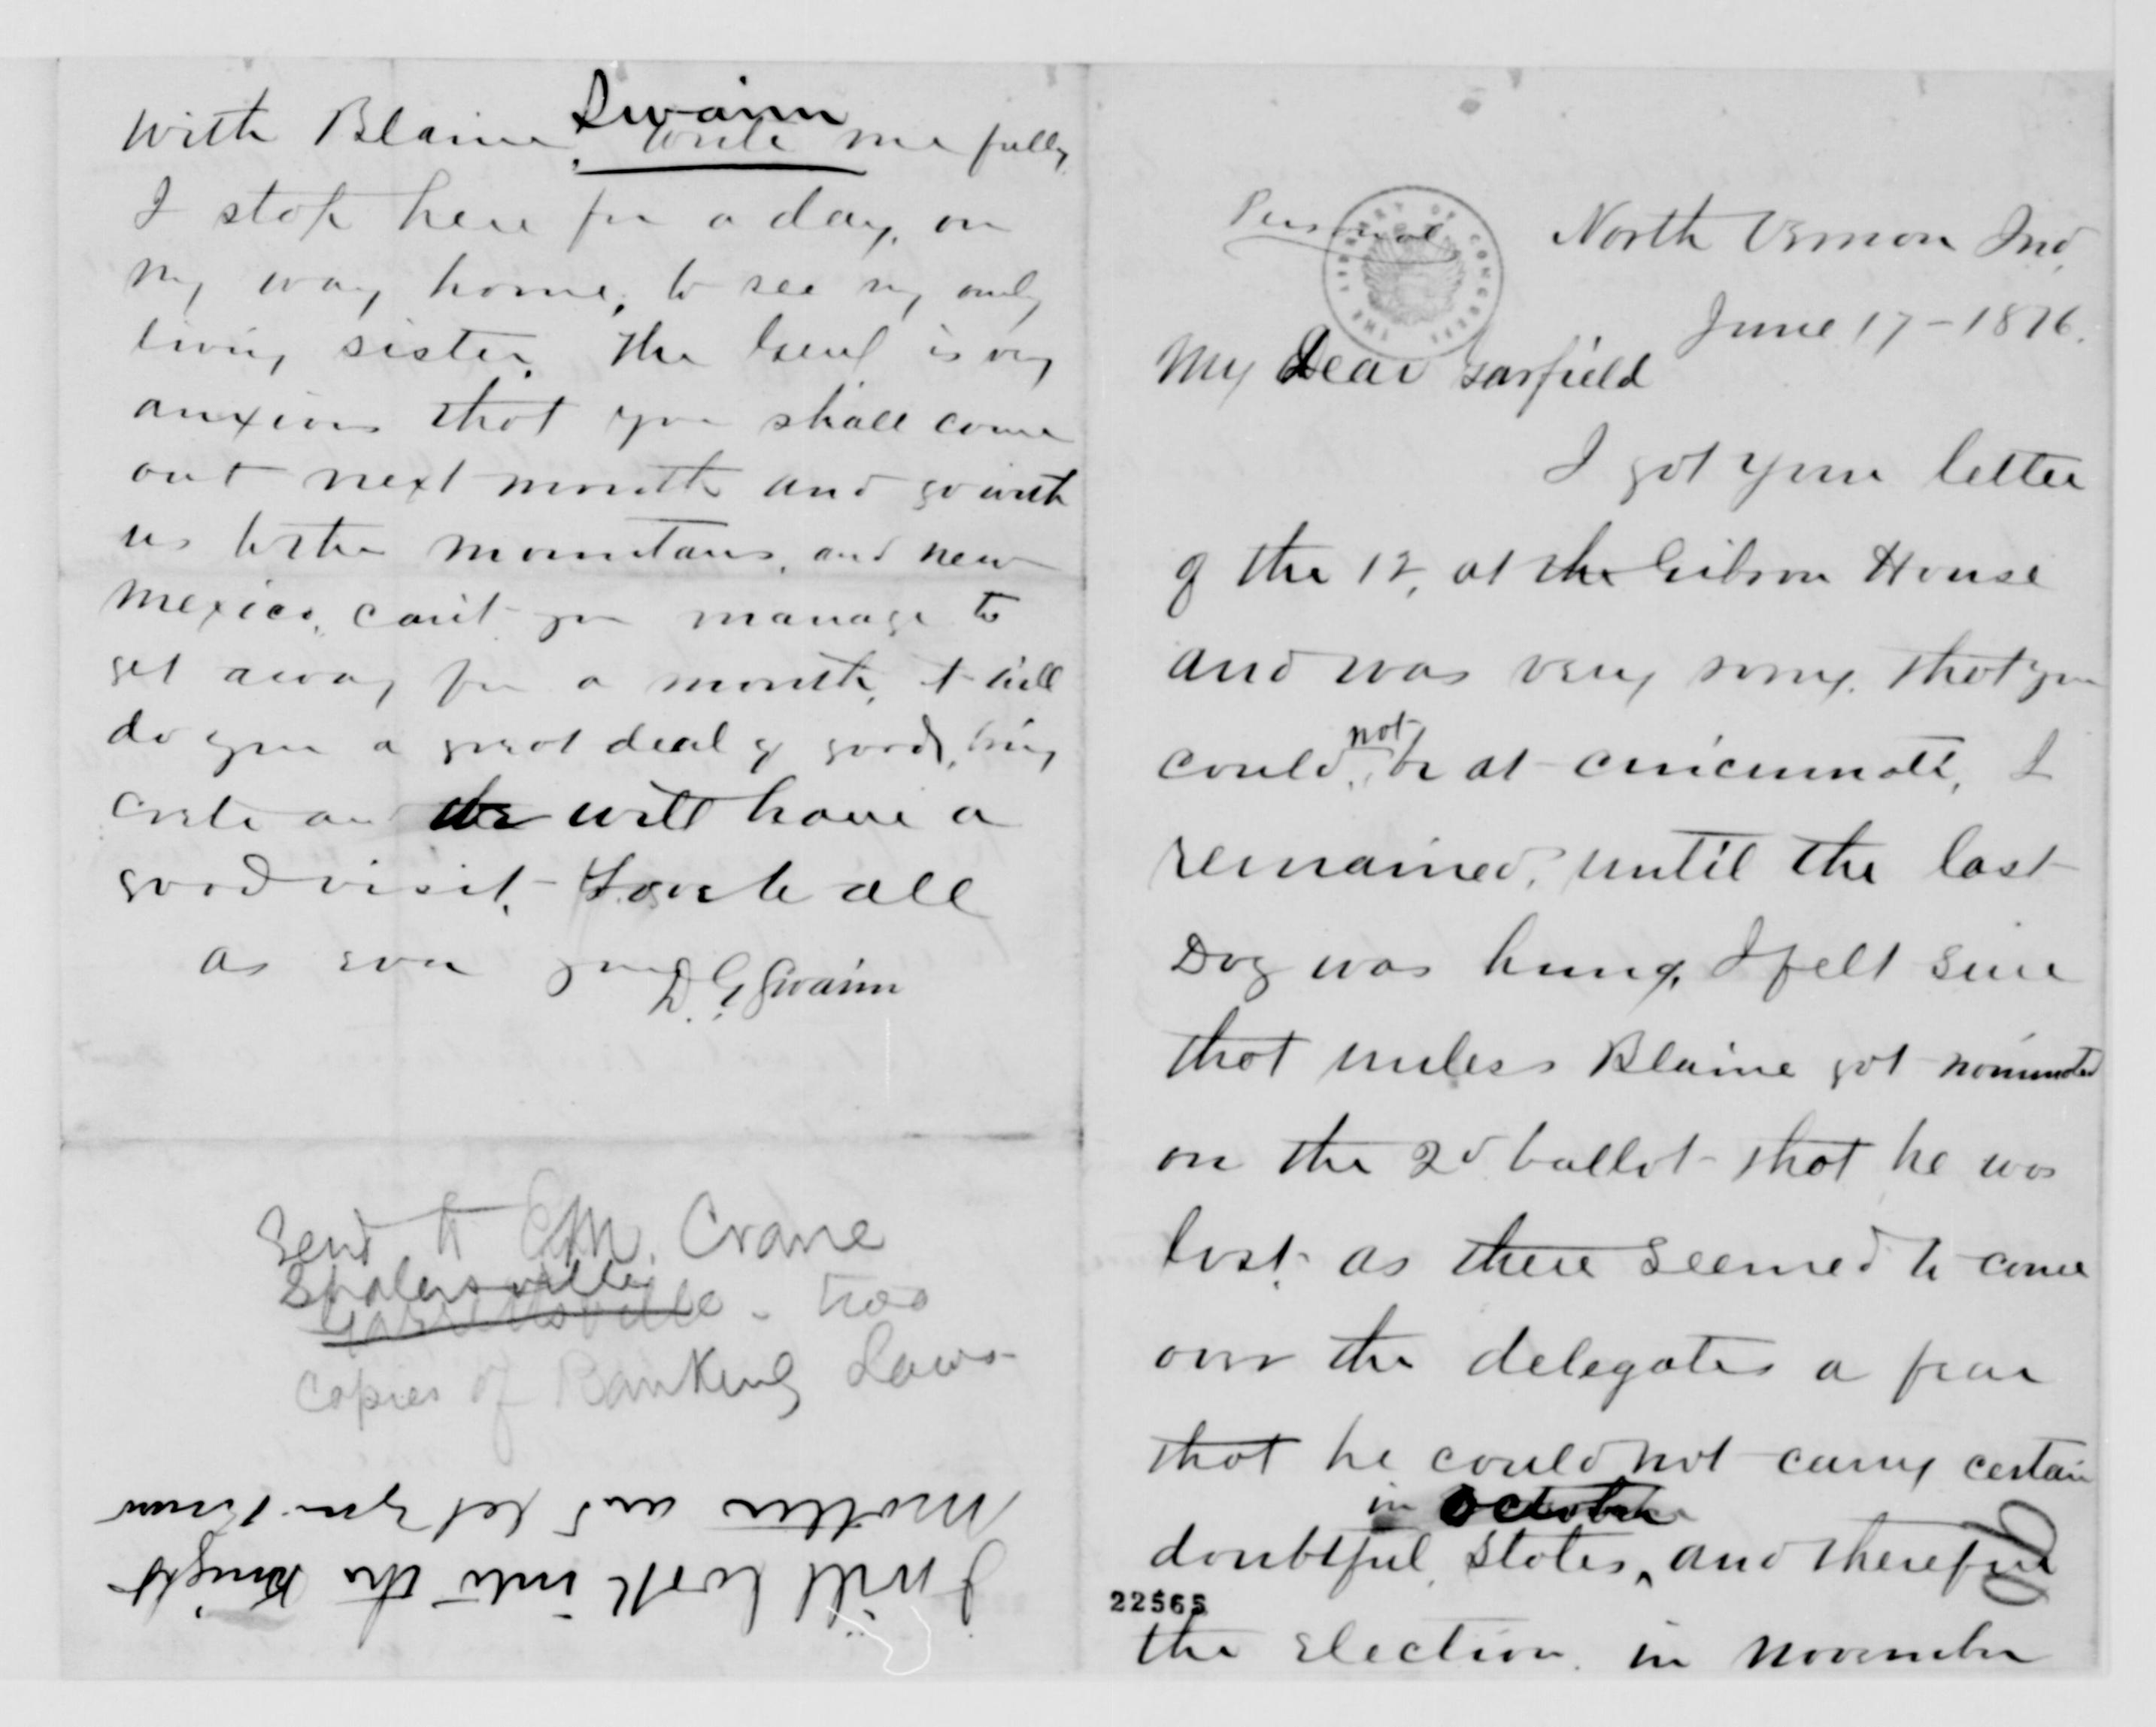 Personal
North Vernon Ind,
June 17 - 1876.
My Dear Garfield
I got your letter
of the 12, at the Gibson House
and was very sorry, that you
could, not be at cincinnati, I
remained, until the last
Dog was hung, I felt sure
that unless Blaine got nominated
on the 2d ballot that he was
lost, as there seemed to come
over the delegates a fear
that he could not carry certain
in October
doubtful, States, and therefore
the election, in november
22565
90
with Blaine, write me fully
Swaim
I stop here for a day, on
my way home, to see my only
living sister. The Genl is very
anxious that you shall come
out next month and go with
us to the mountans, and new
mexico, can't you manage to
get away for a month, it will
do you a great deal of good, bring
Crete and will have a
good visit, Love to all
as ever yours
D. G. Swaim
Send to Crane
Shalersville
Garrettsville - two
copies of Banking Laws
I will look into the Knight
matter and let you know
THE LIBRARY OF CONGRESS